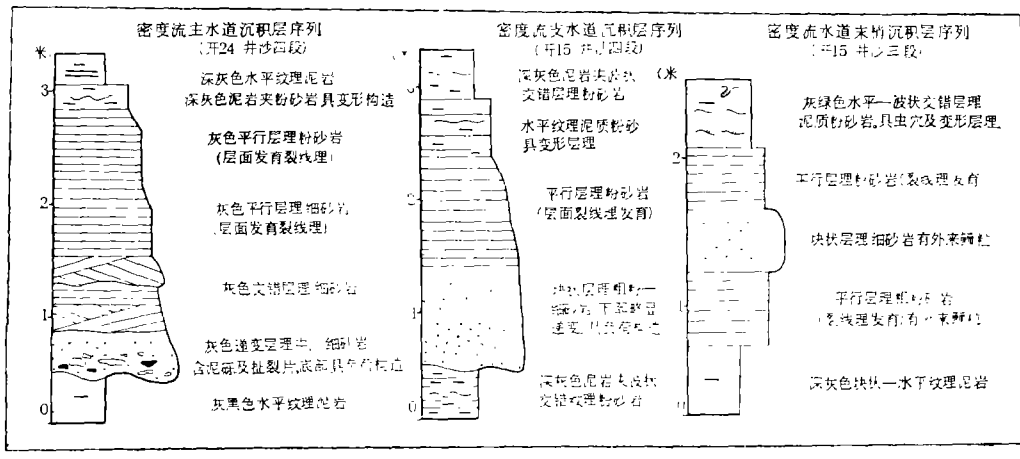 密度流主水道沉积层序列
(开24 井沙四段)
米
3
2
1
0
深灰色水平纹理泥岩
深灰色泥岩夹粉砂岩具变形构造
灰色平行层理粉砂岩
(层面发育裂线理)
灰色平行层理细砂岩
(层面发育裂线理)
灰色交错层理细砂岩
灰色递变层理中—细砂岩
含泥砾及扯裂片,底面具负荷构造
灰黑色水平纹理泥岩
密度流支水道沉积层序列
(开15 井沙四段)
2
1
0
深灰色泥岩夹波状
交错层理粉砂岩
水平纹理泥质粉砂
具变形层理
平行层理粉砂岩
(层面裂线理发育)
块状层理粗粉—
细砂岩
深灰色泥岩夹波状
交错纹理粉砂岩
密度流水道末梢沉积层序列
(开15 井沙三段)
(米
2
1
0
灰绿色水平—波状交错层理
泥质粉砂岩,具虫穴及变形层理
平行层理粉砂岩(裂线理发育
块状层理细砂岩有外来颗粒
平行层理粗粉砂岩
(裂线理发育)有外来颗粒
深灰色块状—水平纹理泥岩